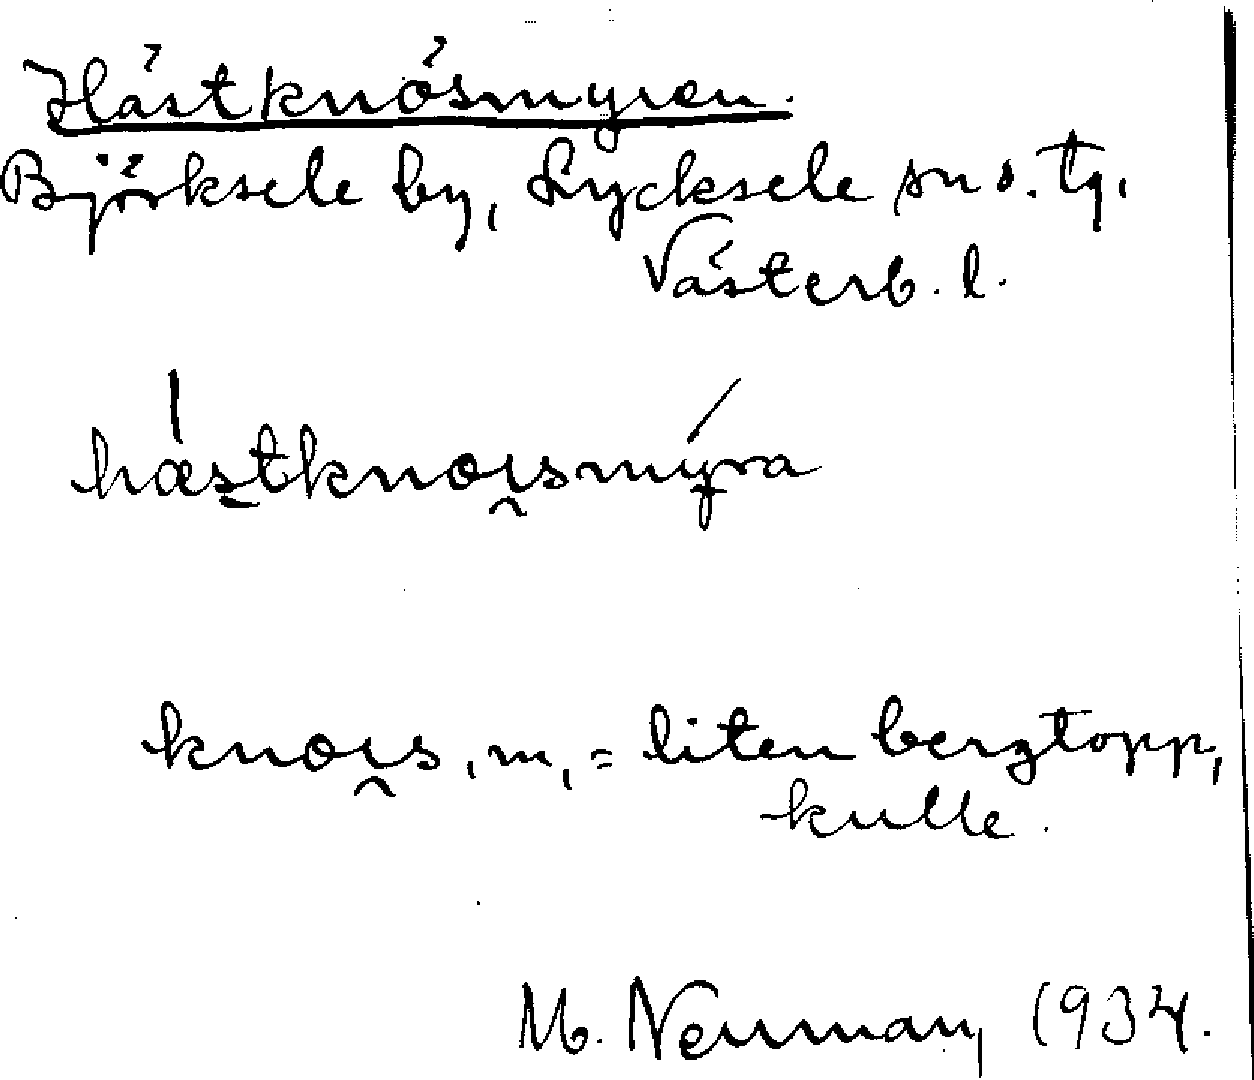 Hästknösmyren.
Björksele by, Lycksele sn o. tg.
Västerb. l.
hæstknoismyra
knois, m, = liten bergtopp,
kulle.
M. Neuman, 1934.